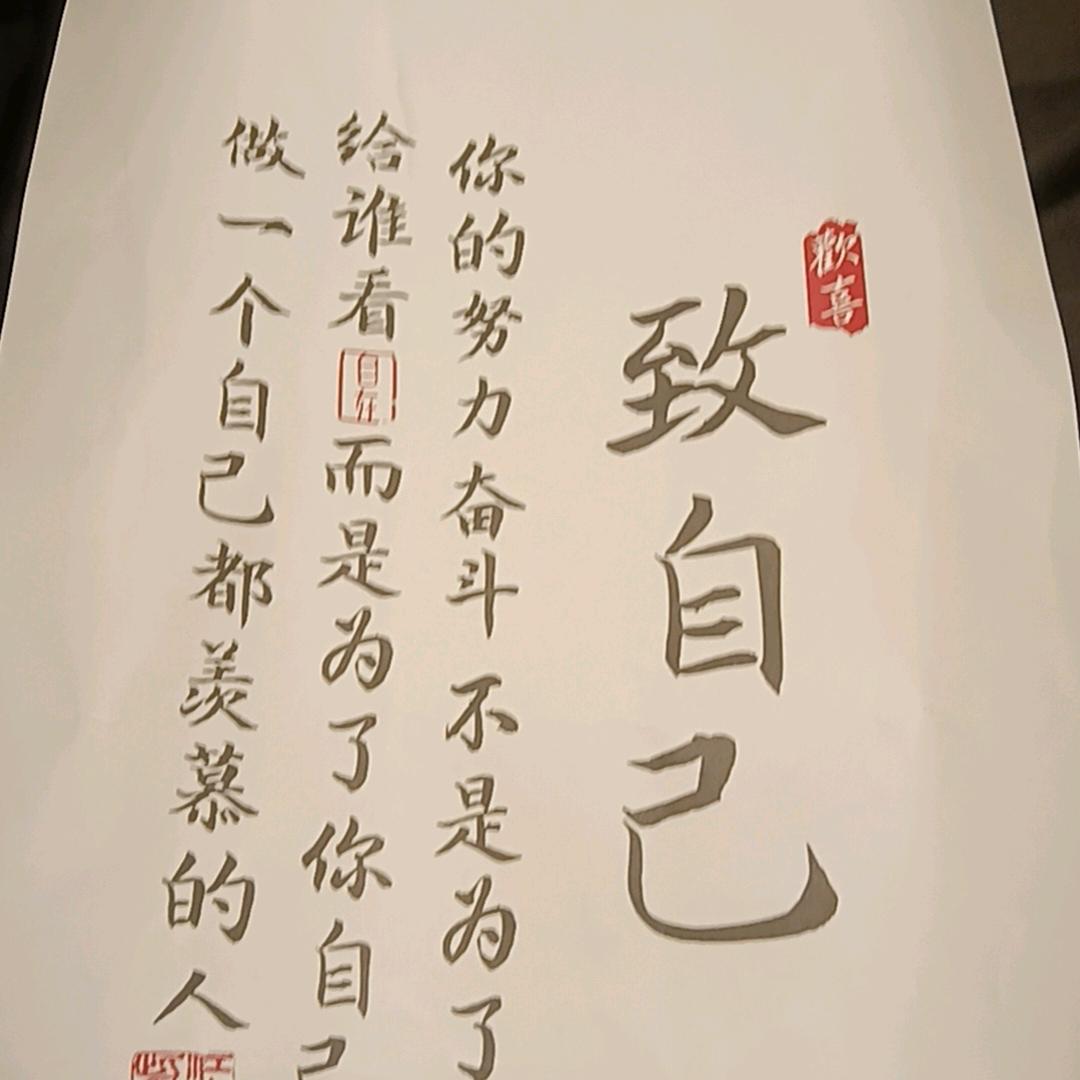 歡喜
致自己
你的努力奋斗不是为了
给谁看
自在
而是为了你自己
做一个自己都羡慕的人